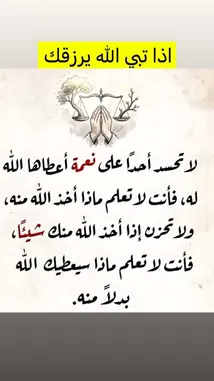 اذا تبي الله يرزقك
لا تحسد أحدًا على نعمة أعطاها الله
له، فأنت لا تعلم ماذا أخذ الله منه،
ولا تحزن إذا أخذ الله منك شيئًا،
فأنت لا تعلم ماذا سيعطيك الله
بدلاً منه.